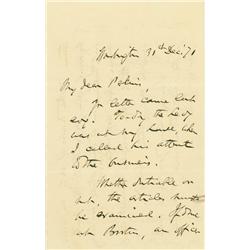 Washington 31st Dec. '71
My dear Palmer,
Yr letter came last
evg. Tonday the
was at my house, when
I called his attent
to the business.
Whether dutiable or
not, the articles must
be examined. If done
at Boston, an office